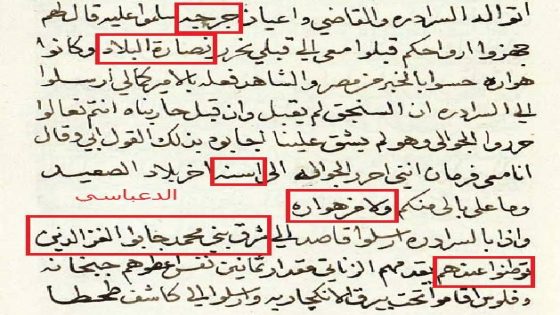 اتوا له السرادره والقاضي واعيان جرجيه سلوا عليه قال لهم
جهزوا ارواحكم قبلوا معي الي قبلي نحرر نصارة البلاد وكانوا
هواره حسوا بالخبر من مصر والشاهد نعله بالامير كالي ارسلوا
الي السرادره ان السنجق لم يقبل وان قبل حاربناه انتم تعالوا
حرروا الجوالي وهو لم يشق علينا اجابوه بذلك القول ابي وقال
انا معي فرمان انني احرر الجواليه الي اسنه اخر بلاد الصعيد
وما على بالي منكم ولا من هواره
الدعباسي
واذا بالسرادره ارسلوا قاصد الي شرق يخي محمد جابوا الغز الذين
قوطنوا عندهم يقدمهم الزناتي مقدار ثمانين نفس اعطوهم جبخانه
وفلوس اقاموا تحت بيرق الانكجاريه وارسلوا الي كاشف طحطا